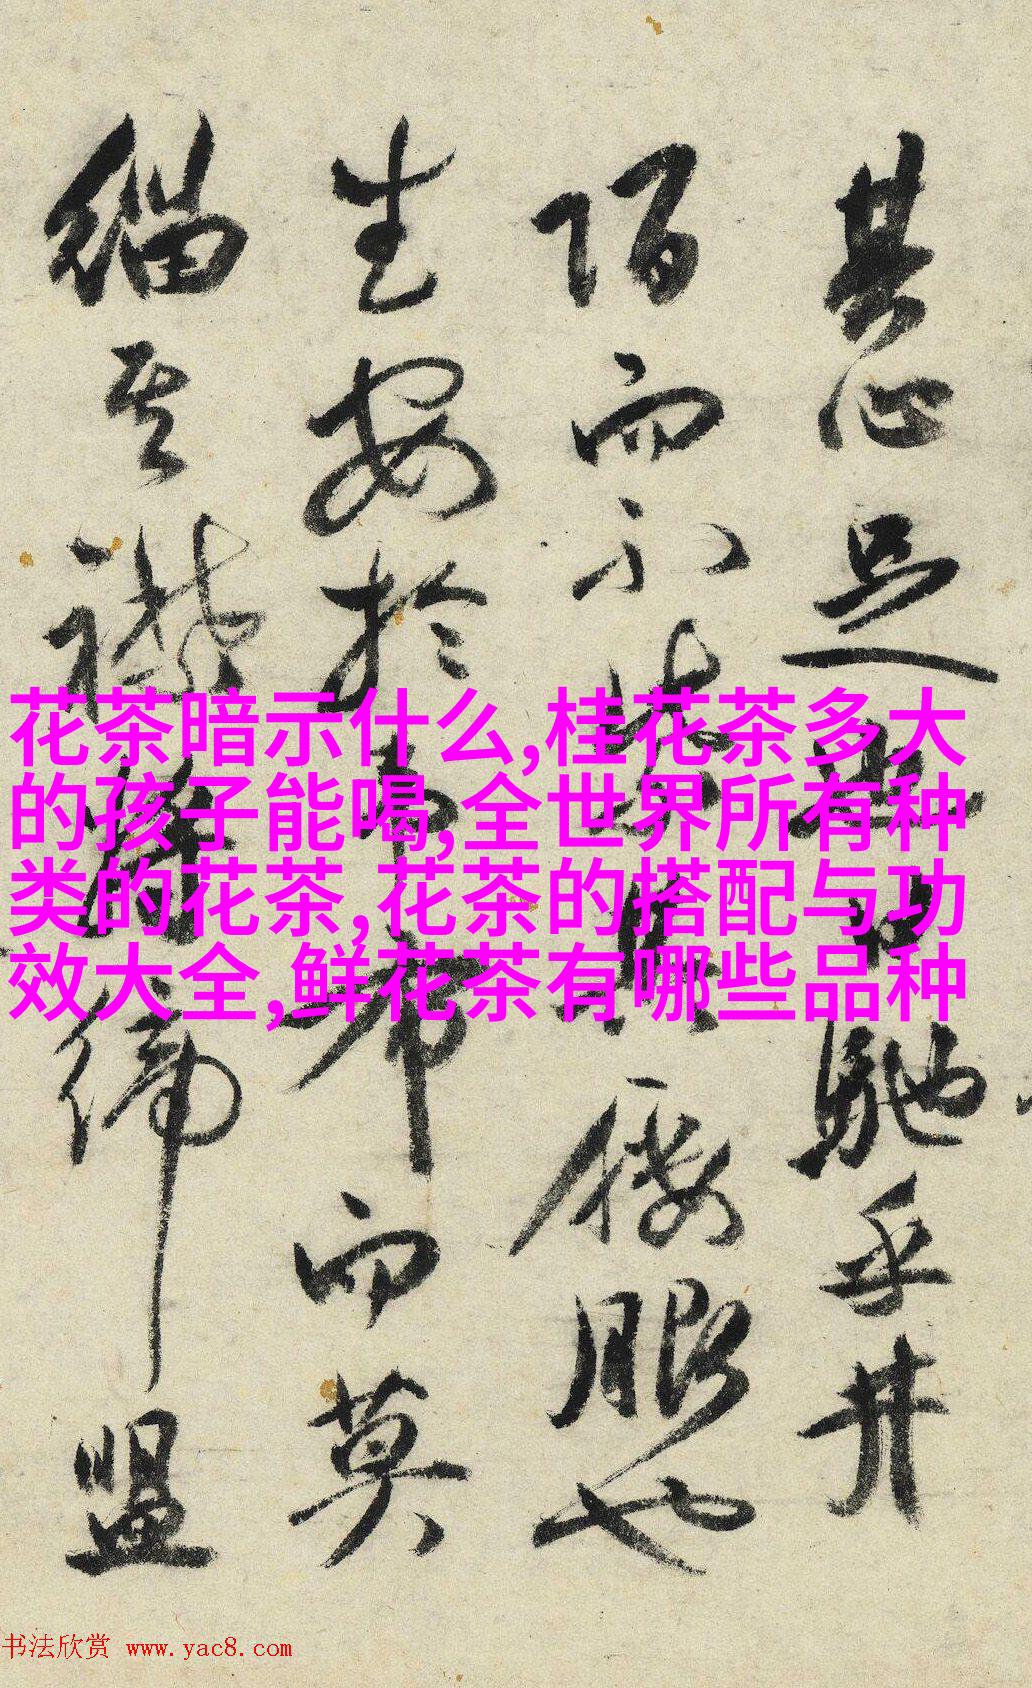 其心足馳乎井
陌而不暇也
生安於布而莫
緇其襟締盟
花茶暗示什么,桂花茶多大
的孩子能喝,全世界所有种
类的花茶,花茶的搭配与功
效大全,鲜花茶有哪些品种
书法欣赏 www.yac8.com